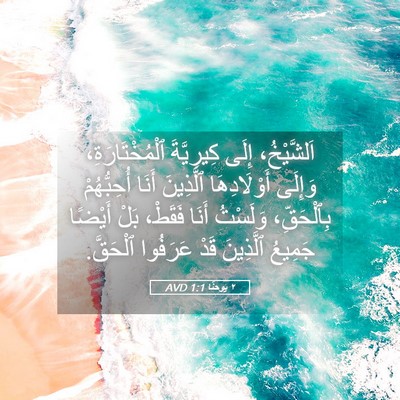 اَلشَّيْخُ، إِلَى كِيرِيَّةَ ٱلْمُخْتَارَةِ،
وَإِلَى أَوْلَادِهَا ٱلَّذِينَ أَنَا أُحِبُّهُمْ
بِٱلْحَقِّ، وَلَسْتُ أَنَا فَقَطْ، بَلْ أَيْضًا
جَمِيعُ ٱلَّذِينَ قَدْ عَرَفُوا ٱلْحَقَّ.
٢ يوحنَّا 1:1 AVD